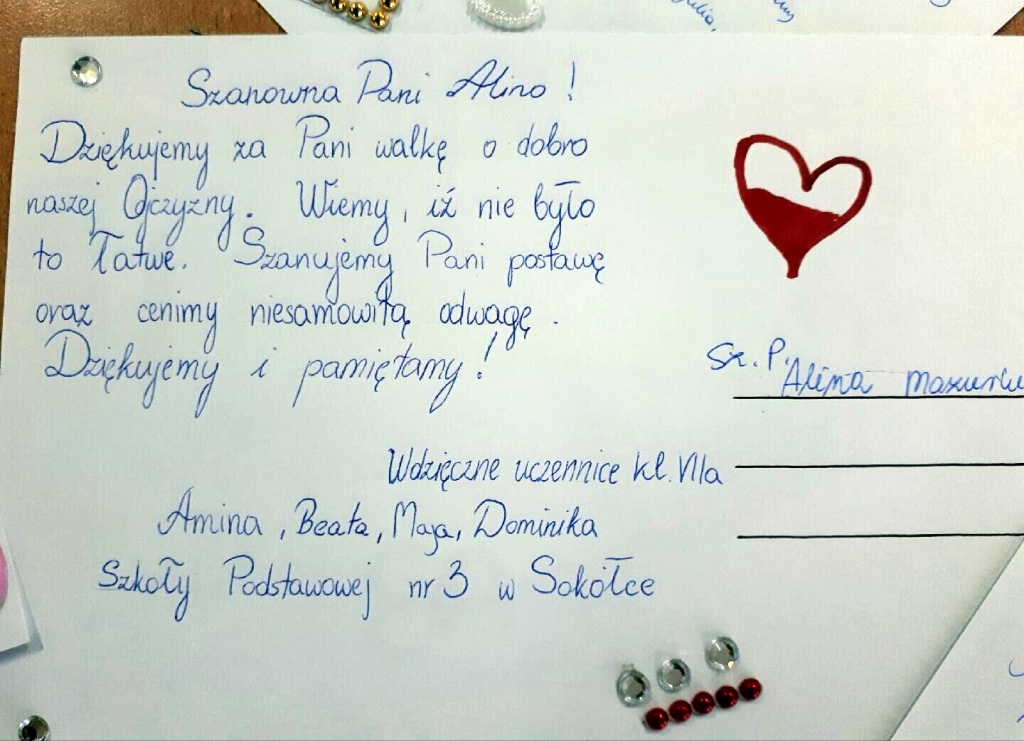 Szanowna Pani Alino!
Dziękujemy za Pani walkę o dobro
naszej Ojczyzny. Wiemy, iż nie było
to Łatwe. Szanujemy Pani postawę
oraz cenimy niesamowitą odwagę.
Dziękujemy i pamiętamy!
Wdzięczne uczennice kl. VIIa
Amina, Beata, Maja, Dominika
Szkoły Podstawowej nr 3 w Sokółce
Sz. P.
Alina